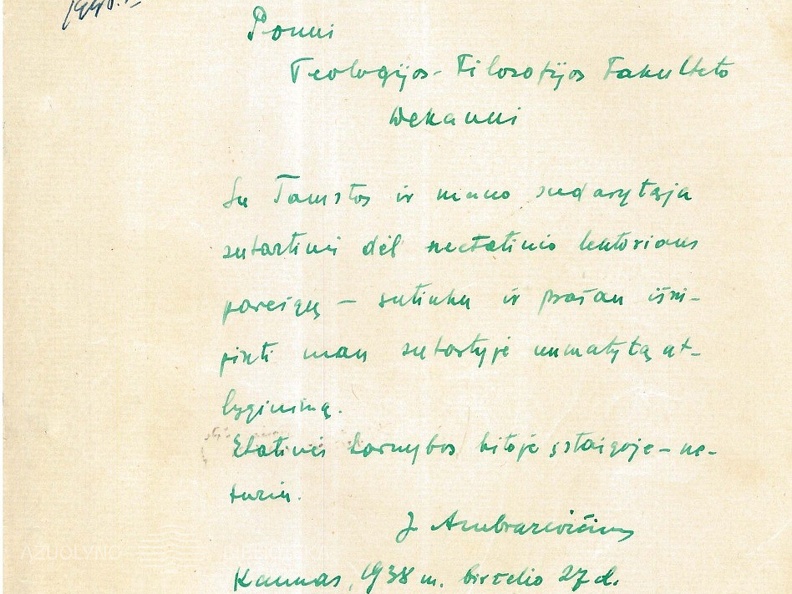 Ponui
Teologijos-Filosofijos Fakulteto
Dekanui
Su Tamstos ir mano sudarytąja
sutartimi dėl neetatinio lektoriaus
pareigų – sutinku ir prašau išru-
pinti man sutartyje numatytą at-
lyginimą.
Etatinės tarnybos kitoje įstaigoje – ne-
turiu.
J. Ambrazevičius
Kaunas, 1938 m. birželio 27 d.
AŽUOLYNO